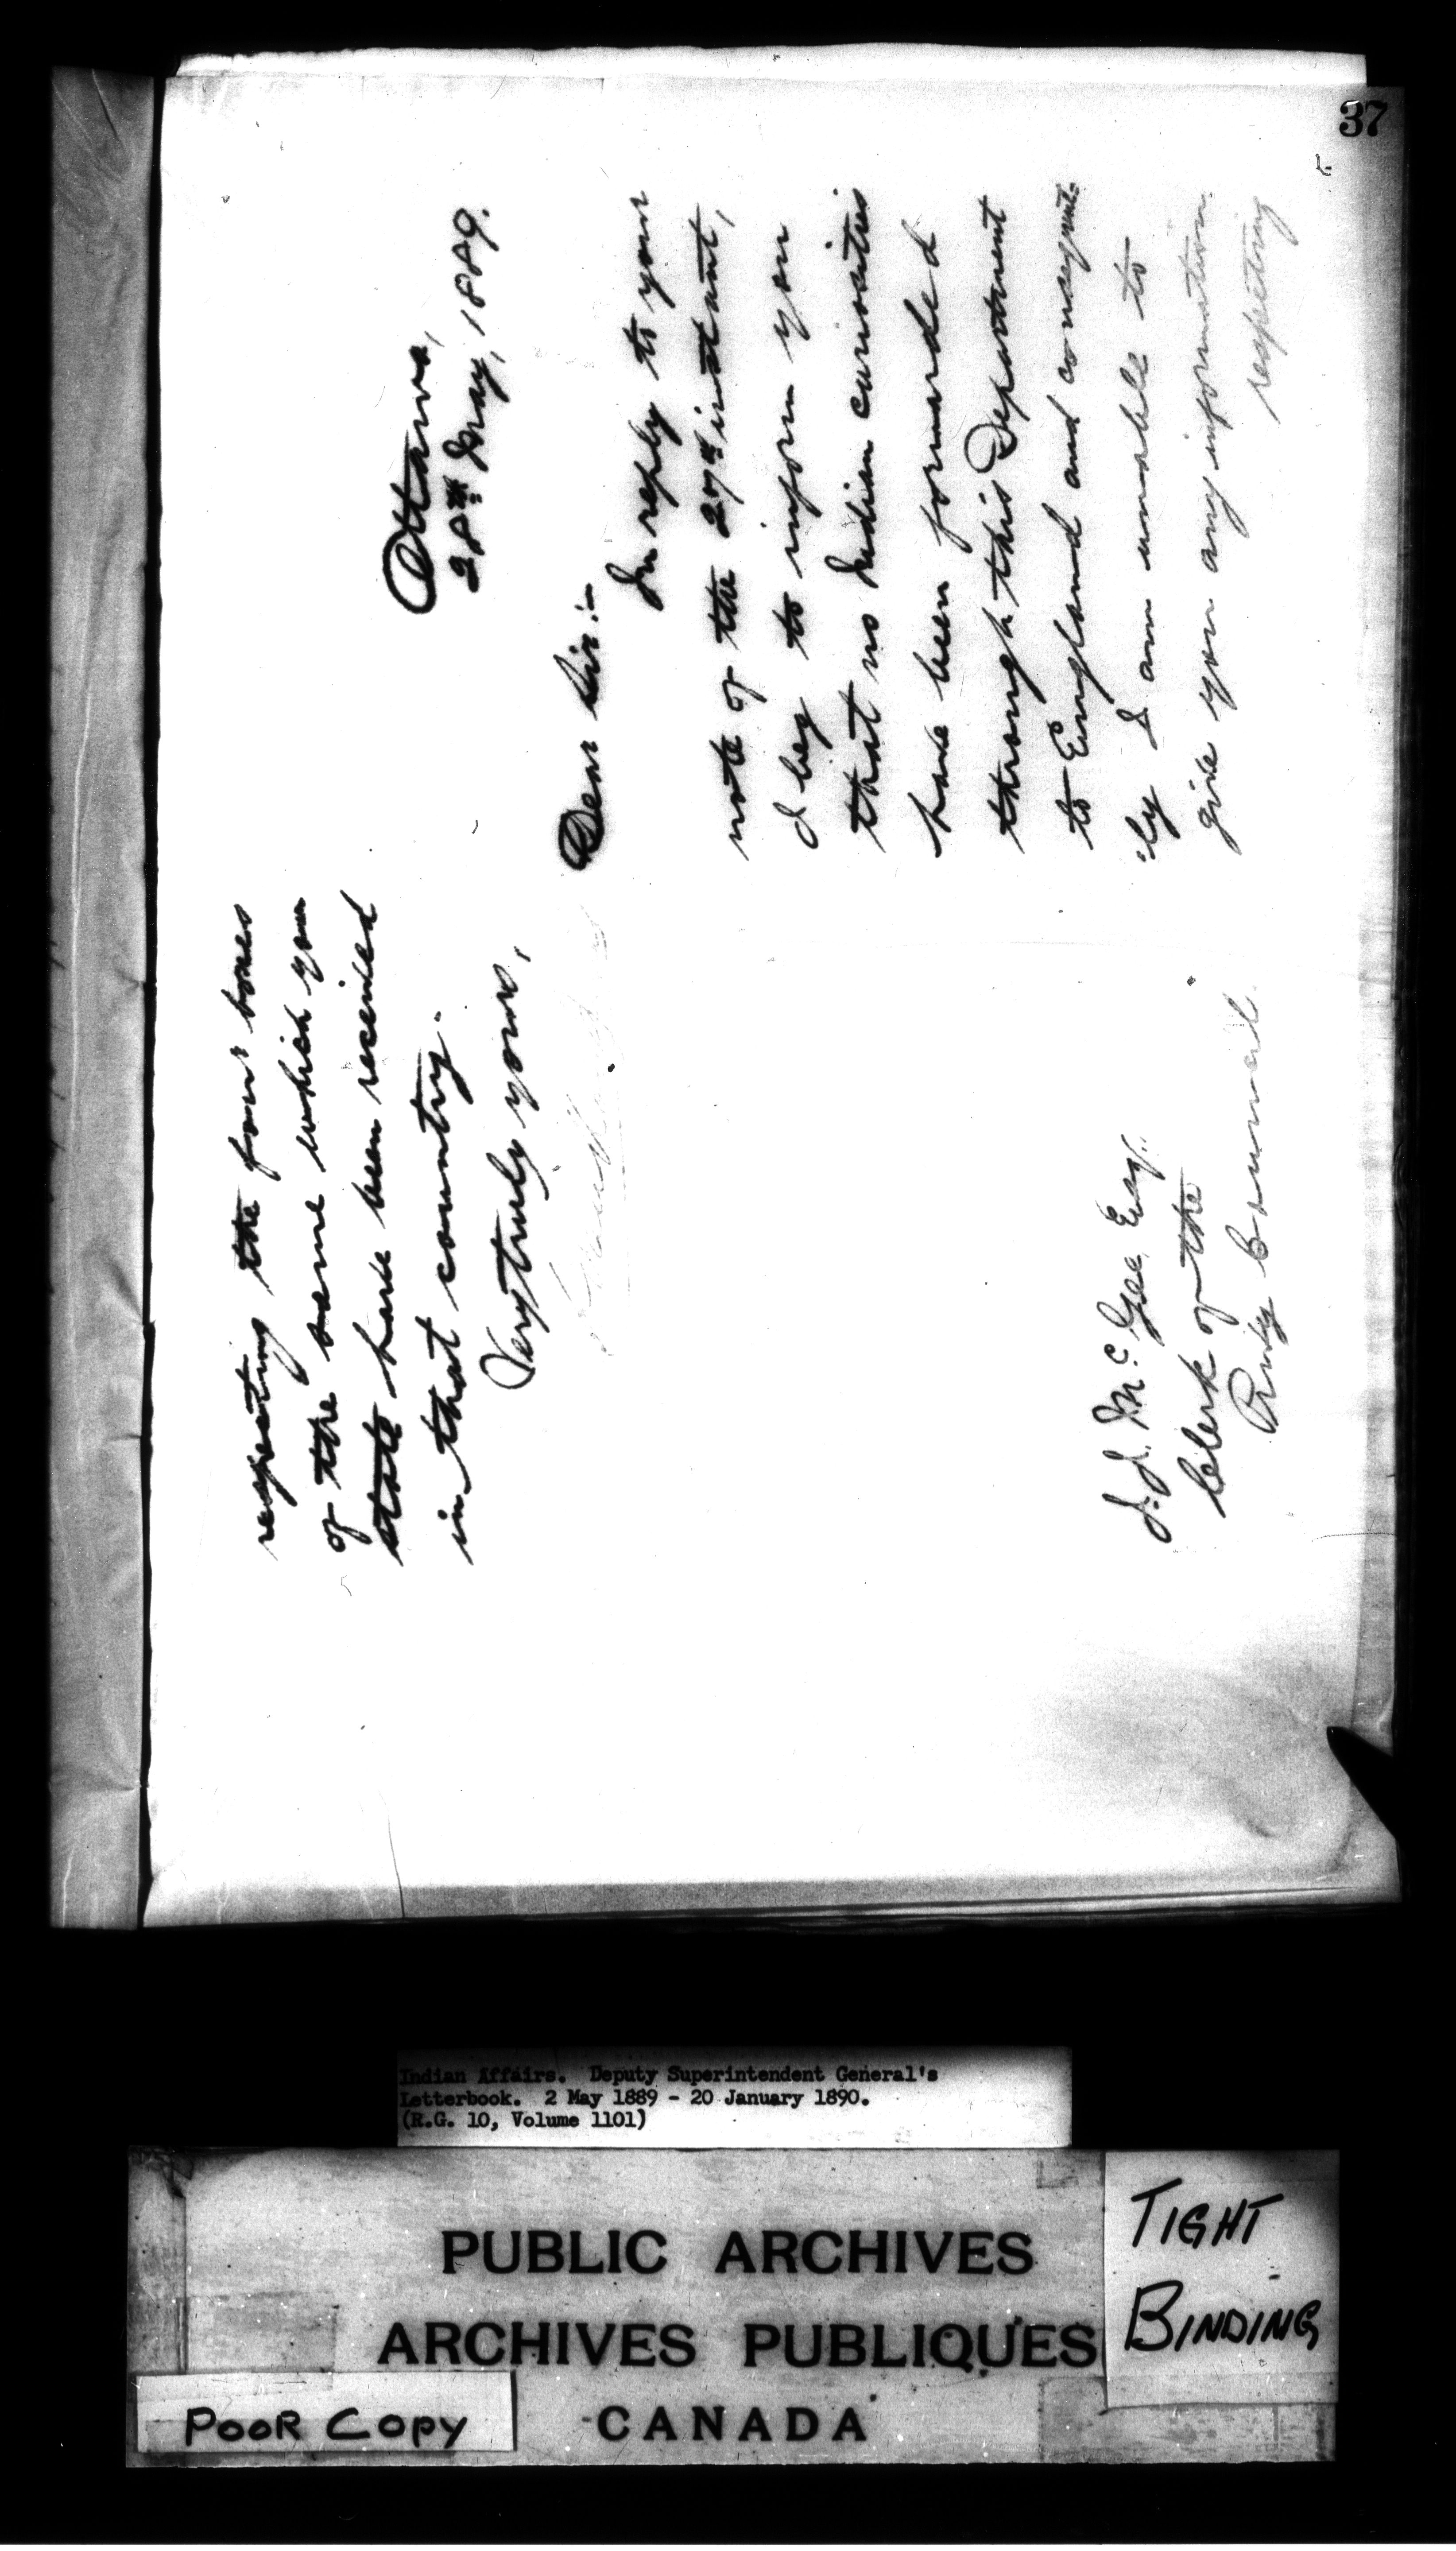 37
Ottawa,
28th May, 1889.
Dear Sir:-
In reply to your
note of the 27th instant,
I beg to inform you
that no Indian curiosities
have been forwarded
through this Department
to England and consequent-
:ly I am unable to
give you any information
respecting
respecting the four boxes
of the same which you
state have been received
in that country.
Very truly yours,
J. J. McGee, Esq.
Clerk of the
Privy Council.
Indian Affairs. Deputy Superintendent General's
Letterbook. 2 May 1889 - 20 January 1890.
(R.G. 10, Volume 1101)
PUBLIC ARCHIVES
ARCHIVES PUBLIQUES
CANADA
TIGHT
BINDING
POOR COPY